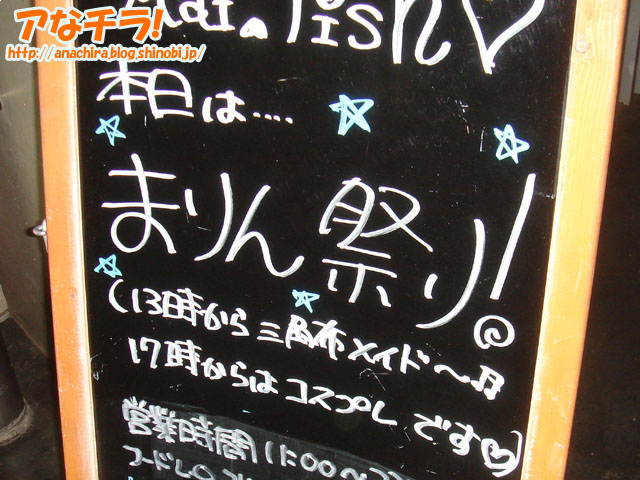 アなチラ!
http://anachira.blog.shinobi.jp/
fish♡
本日は....
まりん祭り!
(13時から三角布メイド〜
17時からはコスプレです♡)
営業時間